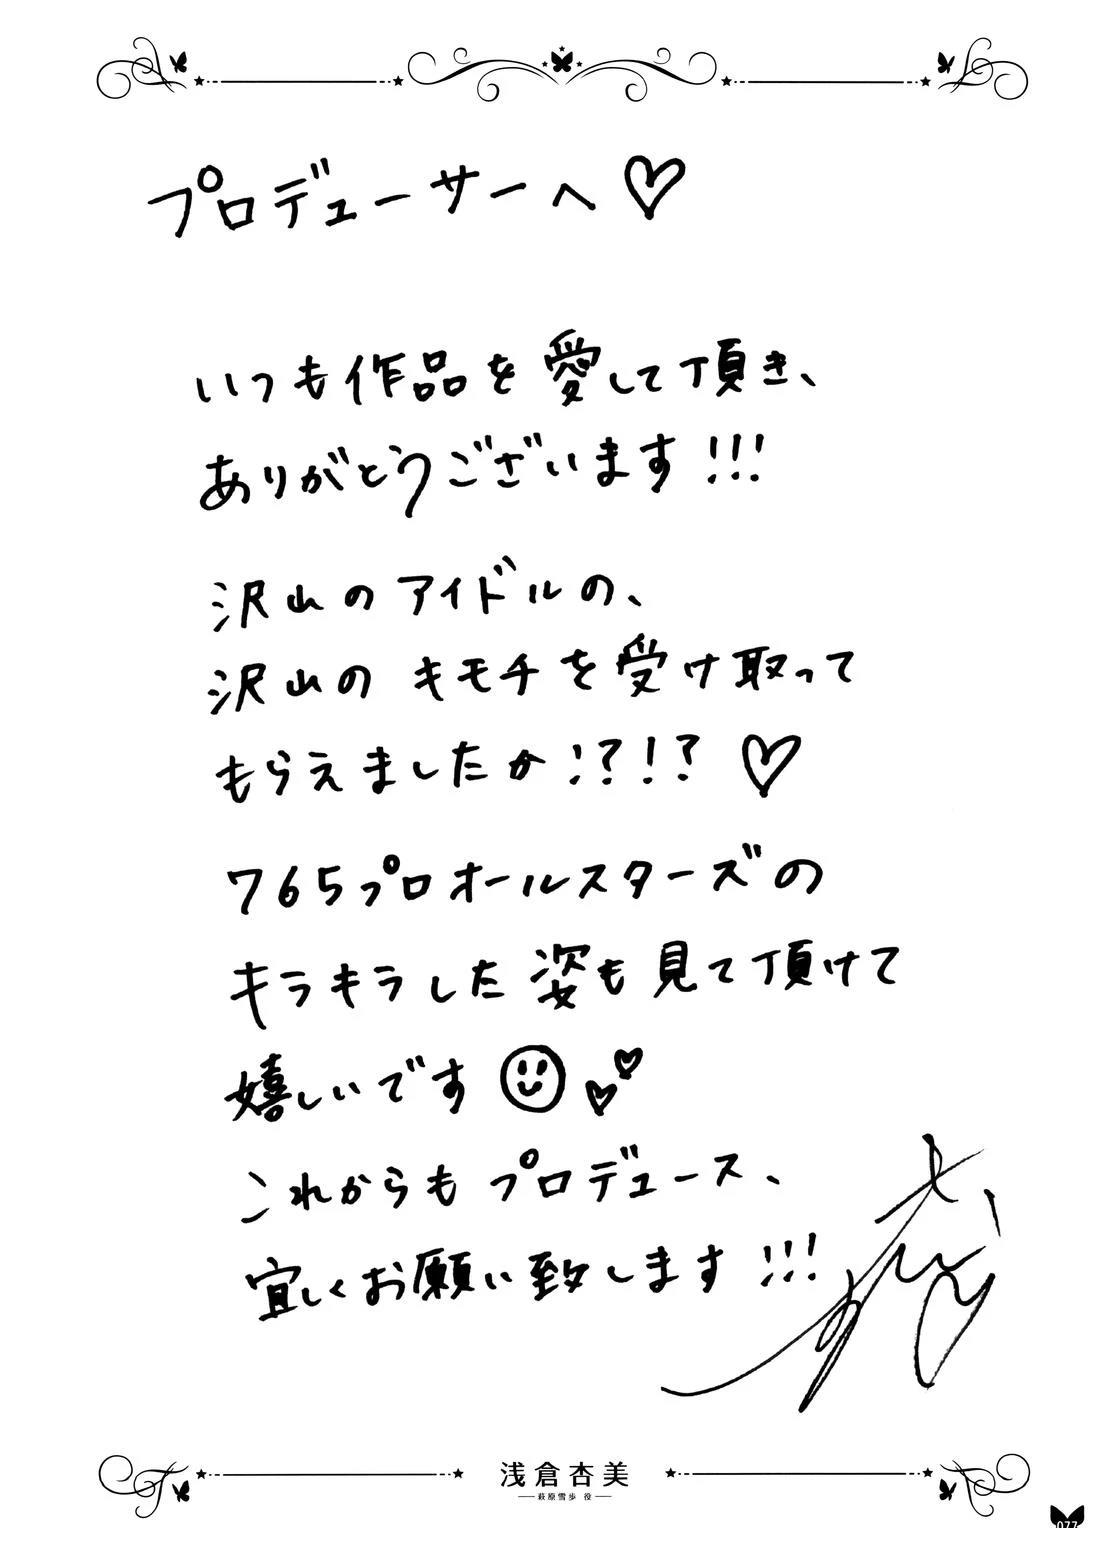 プロデューサーへ♡
いつも作品を愛して頂き、
ありがとうございます!!!
沢山のアイドルの、
沢山のキモチを受け取って
もらえましたか!?!?♡
765プロオールスターズの
キラキラした姿も見て頂けて
嬉しいです
これからもプロデュース、
宜しくお願い致します!!!
浅倉杏美
萩原雪歩 役
077